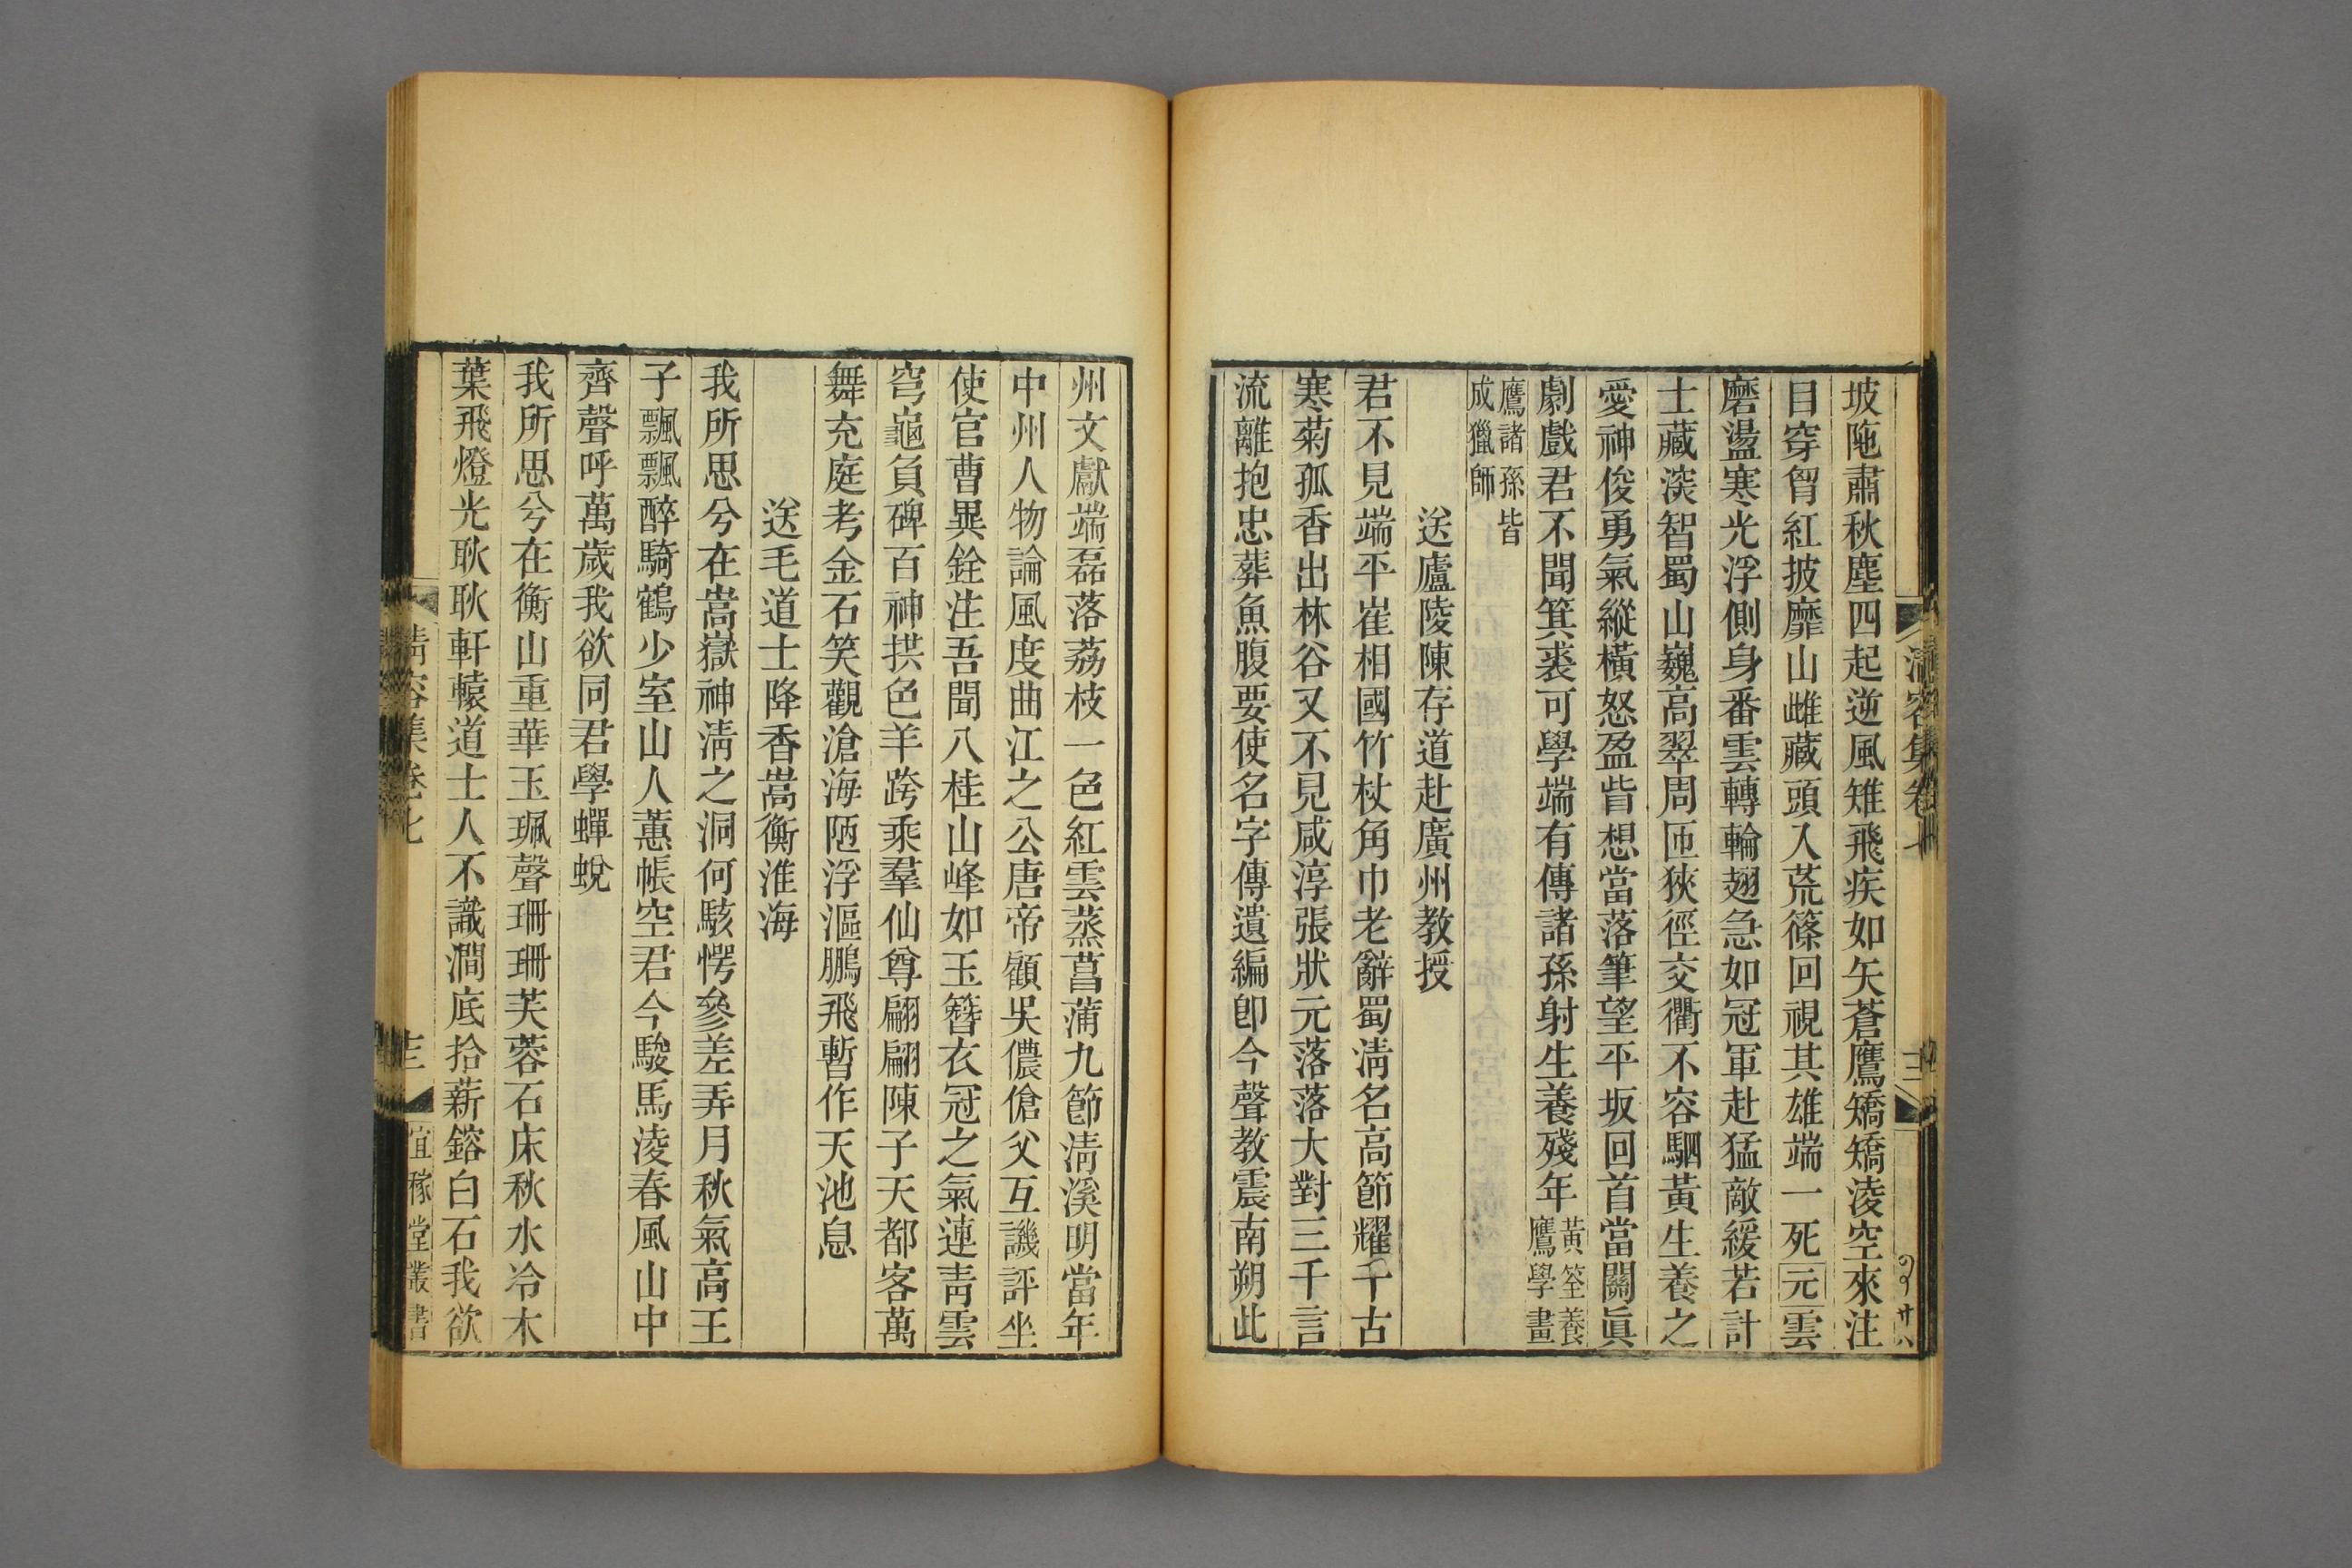 坡陁肅秋塵四起逆風雉飛疾如矢蒼鷹矯矯淩空來注
目穿胷紅披靡山雌藏頭入荒篠回視其雄端一死元雲
磨盪寒光浮側身番雲轉輪翅急如冠軍赴猛敵緩若計
士藏深智蜀山巍高翠周匝狹徑交衢不容駟黃生養之
愛神俊勇氣縱橫怒盈眥想當落筆望平坂回首當關眞
劇戲君不聞箕裘可學端有傳諸孫射生養殘年黃筌養
鷹學畫
鷹諸孫皆
成獵師
送廬陵陳存道赴廣州教授
君不見端平崔相國竹杖角巾老辭蜀淸名高節耀千古
寒菊孤香出林谷又不見咸淳張狀元落落大對三千言
流離抱忠葬魚腹要使名字傳遺編卽今聲教震南朔此
州文獻端磊落荔枝一色紅雲蒸菖蒲九節淸溪明當年
中州人物論風度曲江之公唐帝顧吳儂傖父互譏評坐
使官曹異銓注吾聞八桂山峰如玉簪衣冠之氣連靑雲
穹龜負碑百神拱色羊跨乘羣仙尊翩翩陳子天都客萬
舞充庭考金石笑觀滄海陋浮漚鵬飛暫作天池息
送毛道士降香嵩衡淮海
我所思兮在嵩嶽神淸之洞何駭愕參差弄月秋氣高王
子飄飄醉騎鶴少室山人蕙帳空君今駿馬淩春風山中
齊聲呼萬歲我欲同君學蟬蛻
我所思兮在衡山重華玉珮聲珊珊芙蓉石床秋水冷木
葉飛燈光耿耿軒轅道士人不識澗底拾薪鎔白石我欲
淸容集卷七
十三
宜稼堂叢書